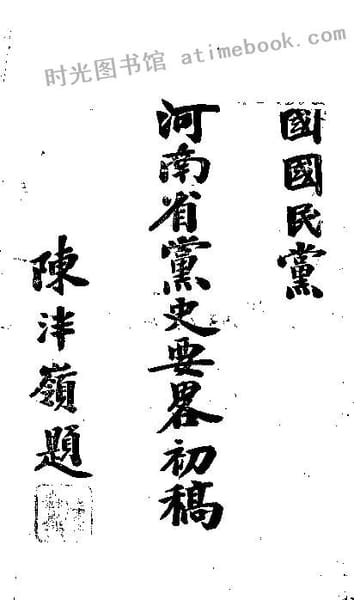 时光图书馆 atimebook.com
國國民黨
河南省黨史要畧初稿
陳泮嶺題